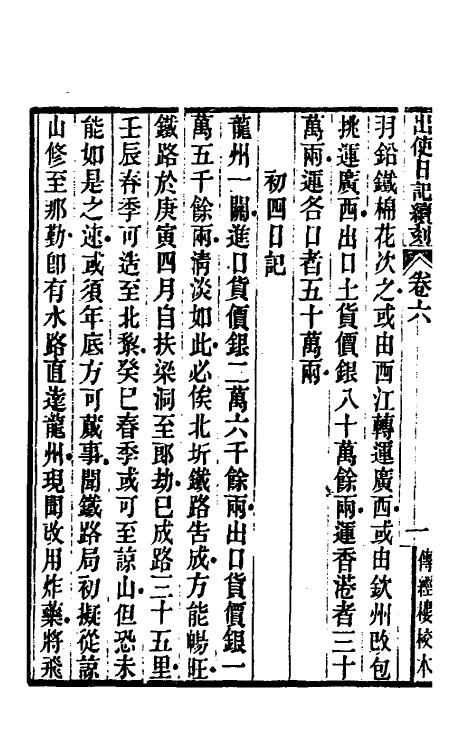 出使日記續刻 卷六 一 傳經樓校本
羽鉛鐵棉花次之或由西江轉運廣西或由欽州改包
挑運廣西出口土貨價銀八十萬餘兩運香港者三十
萬兩運各口者五十萬兩
初四日記
龍州一關進口貨價銀二萬六千餘兩出口貨價銀一
萬五千餘兩清淡如此必俟北圻鐵路告成方能暢旺
鐵路於庚寅四月自扶梁洞至郎劫已成路三十五里
壬辰春季可造至北黎癸巳春季或可至諒山但恐未
能如是之速或須年底方可蕆事聞鐵路局初擬從諒
山修至那勤卽有水路直達龍州現聞改用炸藥將飛